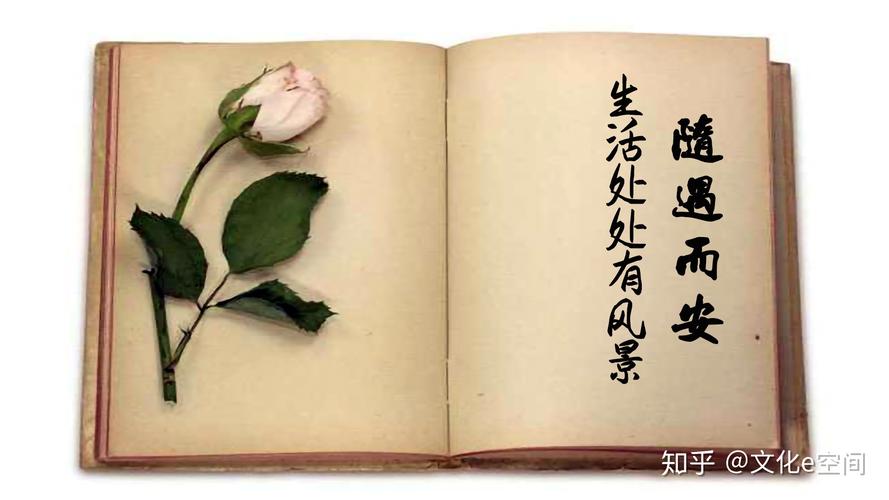 隨遇而安
生活处处有风景
知乎 @文化e空间